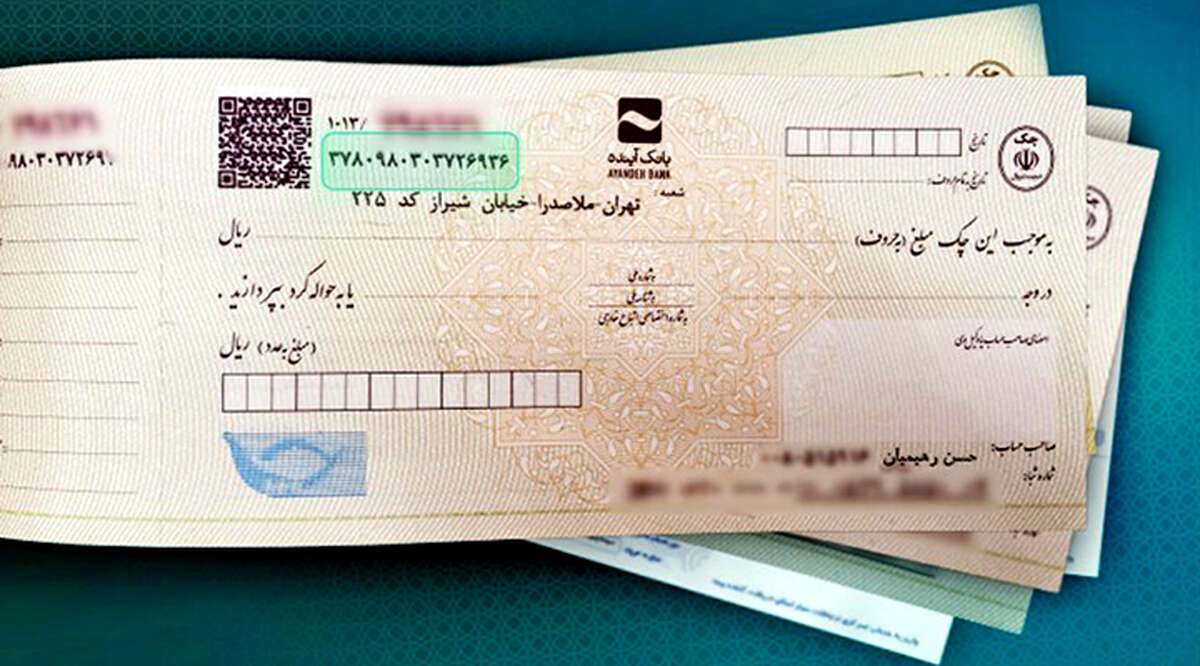 ۹۸۰۳۰۳۷۲۶۹
۱۰۱۳/
۳۷۸۰۹۸۰۳۰۳۷۲۶۹۳۶
بانک آینده
AYANDEH BANK
شعبه:
تهران-ملاصدرا-خیابان شیراز کد ۲۲۵
چک
تاریخ
تاریخ به تمام حروف:
به موجب این چک مبلغ (به حروف)
ریال
به شماره ملی
به شناسه ملی
به شماره اختصاصی اتباع خارجی
در وجه
یا به حواله کرد بپردازند.
(مبلغ به عدد) ریال
امضای صاحب حساب یا وکیل وی
صاحب حساب:
حسن رهیمیان
شماره شبا: